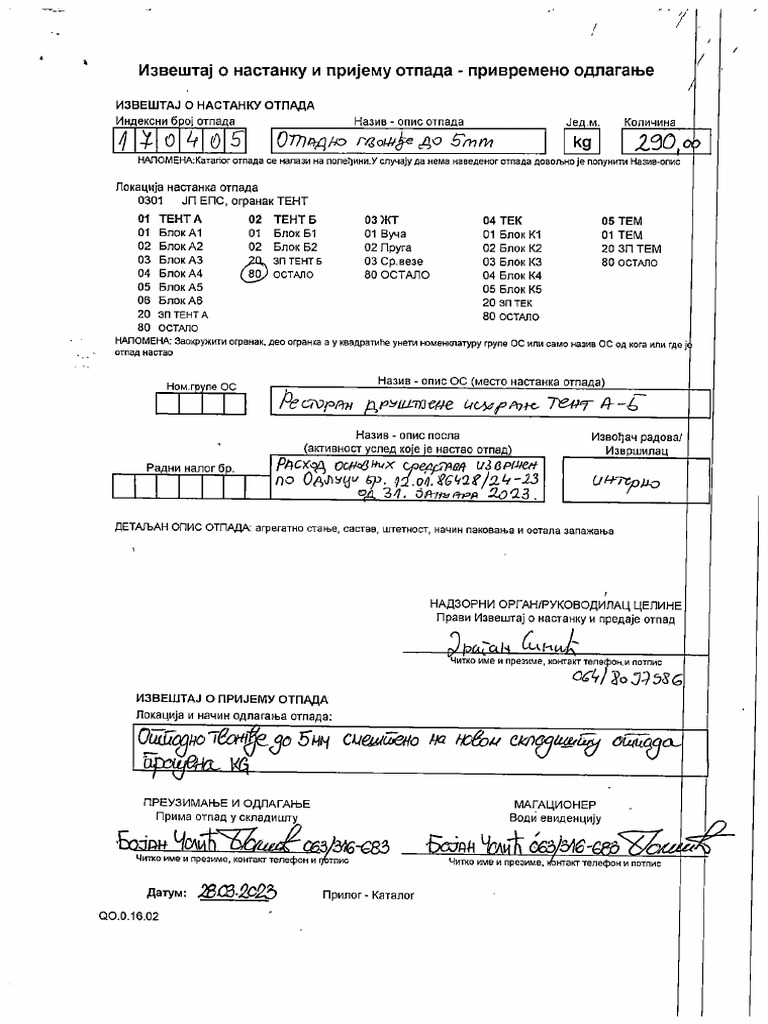 Извештај о настанку и пријему отпада - привремено одлагање
ИЗВЕШТАЈ О НАСТАНКУ ОТПАДА
Индексни број отпада Назив - опис отпада Јед.м. Количина
170405 Отпадно гвожђе до 5mm kg 290,00
НАПОМЕНА:Каталог отпада се налази на полеђини.У случају да нема наведеног отпада довољно је попунити Назив-опис
Локација настанка отпада
0301 ЈП ЕПС, огранак ТЕНТ
01 ТЕНТ А 02 ТЕНТ Б 03 ЖТ 04 ТЕК 05 ТЕМ
01 Блок А1 01 Блок Б1 01 Вуча 01 Блок К1 01 ТЕМ
02 Блок А2 02 Блок Б2 02 Пруга 02 Блок К2 20 ЗП ТЕМ
03 Блок А3 20 ЗП ТЕНТ Б 03 Ср.везе 03 Блок К3 80 ОСТАЛО
04 Блок А4 80 ОСТАЛО 80 ОСТАЛО 04 Блок К4
05 Блок А5 05 Блок К5
06 Блок А6 20 ЗП ТЕК
20 ЗП ТЕНТ А 80 ОСТАЛО
80 ОСТАЛО
НАПОМЕНА: Заокружити огранак, део огранка а у квадратиће унети номенклатуру групе ОС или само назив ОС од кога или где је
отпад настао
Ном.групе ОС Назив - опис ОС (место настанка отпада)
Ресторан друштвене исхране ТЕНТ А-Б
Назив - опис посла Извођач радова/
(активност услед које је настао отпад) Извршилац
Радни налог бр. Расход основних средстава извршен
по Одлуци бр. 12.01.86428/24-23 интерно
од 31. јануара 2023.
ДЕТАЉАН ОПИС ОТПАДА: агрегатно стање, састав, штетност, начин паковања и остала запажања
НАДЗОРНИ ОРГАН/РУКОВОДИЛАЦ ЦЕЛИНЕ
Прави Извештај о настанку и предаје отпад
Драган Синић
Читко име и презиме, контакт телефон и потпис
064/8097586
ИЗВЕШТАЈ О ПРИЈЕМУ ОТПАДА
Локација и начин одлагања отпада:
Отпадно гвожђе до 5мм смештено на новом складишту отпада
процена KG
ПРЕУЗИМАЊЕ И ОДЛАГАЊЕ МАГАЦИОНЕР
Прима отпад у складишту Води евиденцију
Бојан Чолић 063/316-683 Бојан Чолић 063/316-683
Читко име и презиме, контакт телефон и потпис Читко име и презиме, контакт телефон и потпис
Датум: 28.03.2023 Прилог - Каталог
QO.0.16.02